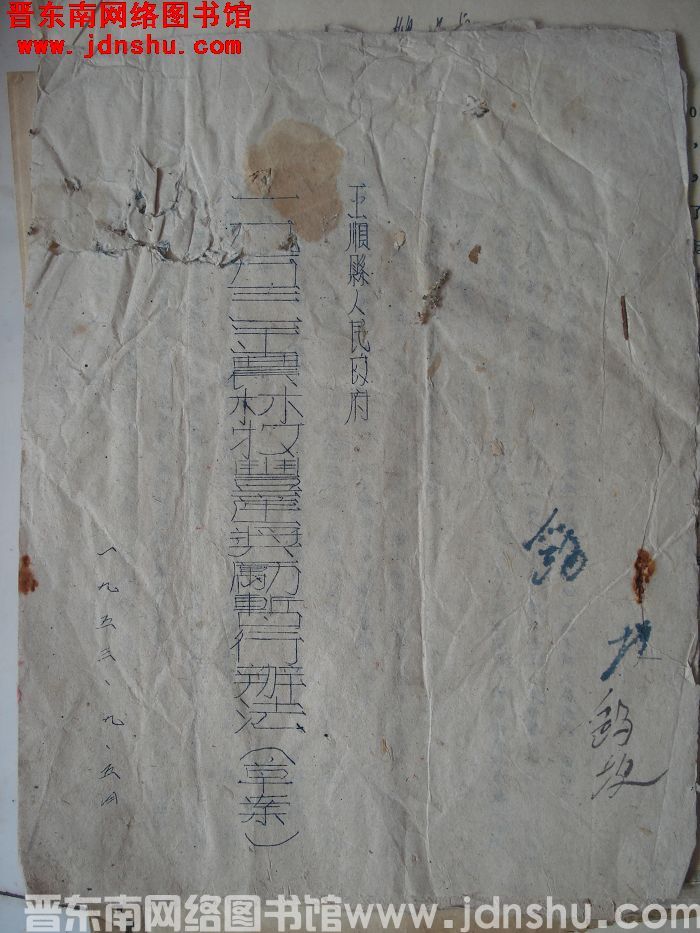 晋东南网络图书馆
www.jdnshu.com
平順縣人民政府
一九五三年農林牧豐產獎勵暫行辦法（草案）
一九五三、九、五日
晋东南网络图书馆www.jdnshu.com